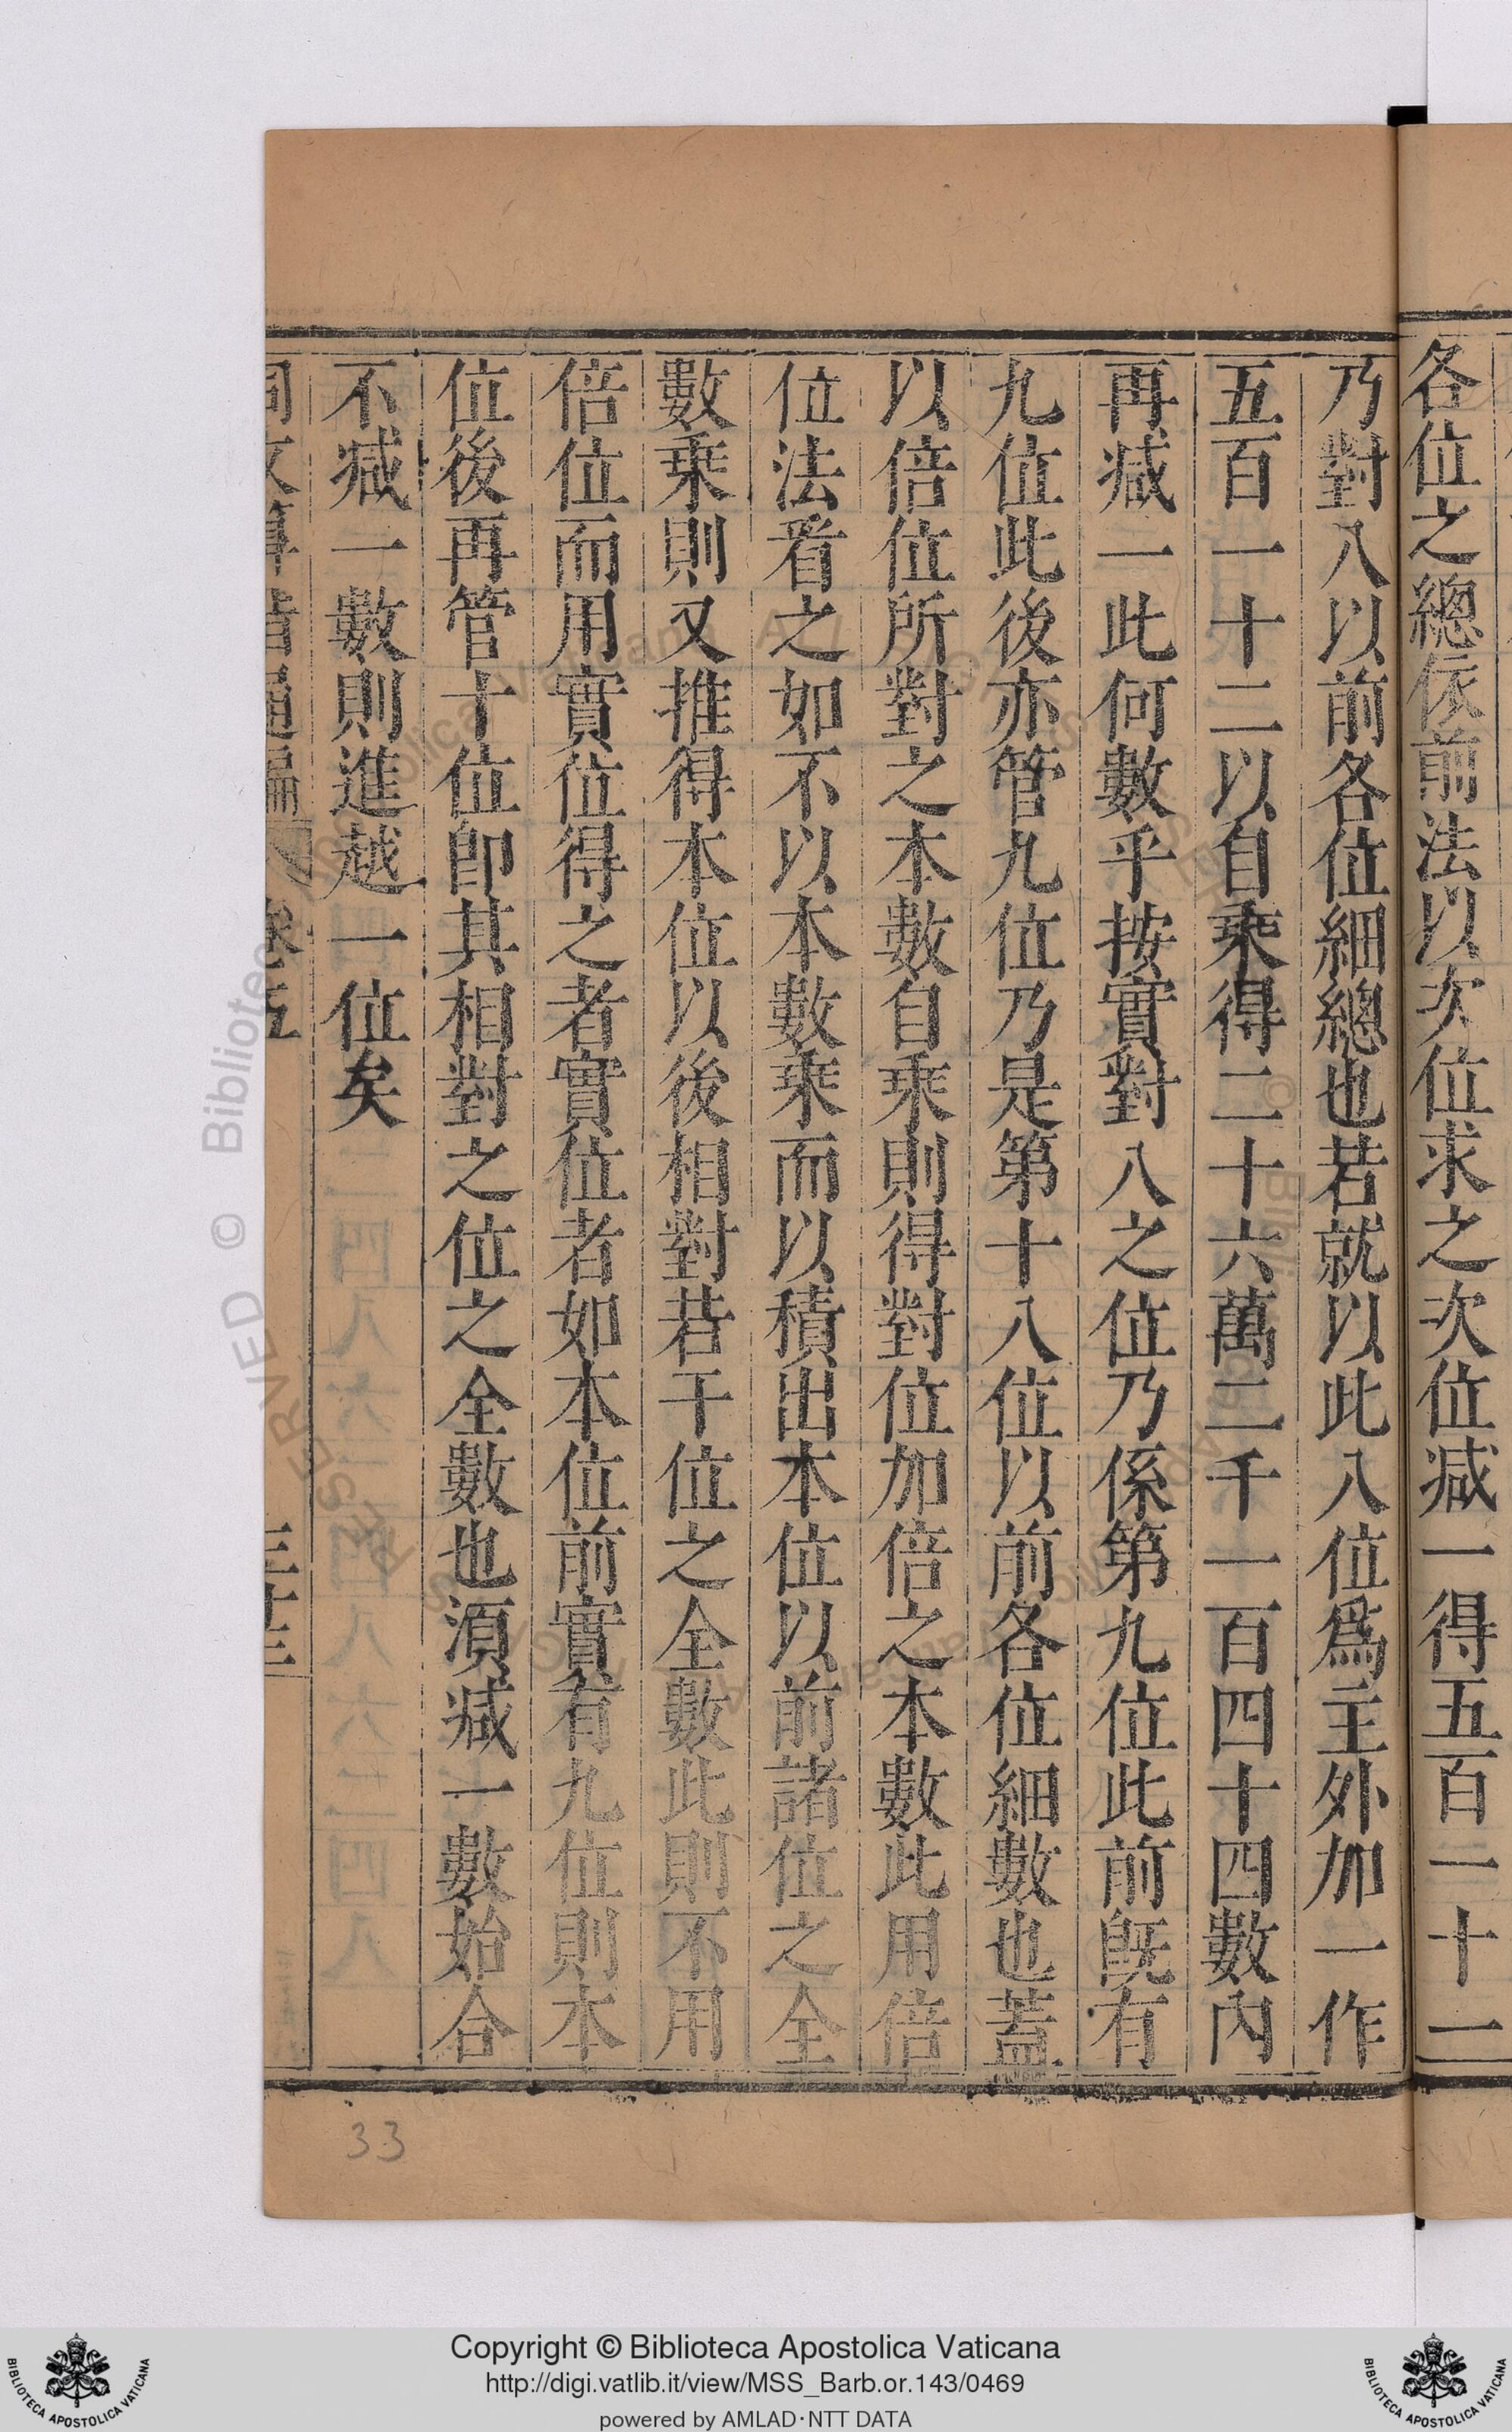 各位之總依前法以次位求之次位减一得五百一十一
乃對八以前各位細總也若就以此八位爲主外加一作
五百一十二以自乘得二十六萬二千一百四十四數內
再减一此何數乎按實對八之位乃係第九位此前旣有
九位此後亦管九位乃是第十八位以前各位細數也蓋
以倍位所對之本數自乘則得對位加倍之本數此用倍
位法看之如不以本數乘而以積出本位以前諸位之全
數乘則又推得本位以後相對若干位之全數此則不用
倍位而用實位得之者實位者如本位前實有九位則本
位後再管十位卽其相對之位之全數也湏减一數始合
不减一數則進越一位矣
同文算指通編 卷五 三十三
33
Copyright © Biblioteca Apostolica Vaticana
http://digi.vatlib.it/view/MSS_Barb.or.143/0469
powered by AMLAD·NTT DATA
BIBLIOTECA APOSTOLICA VATICANA
BIBLIOTECA APOSTOLICA VATICANA